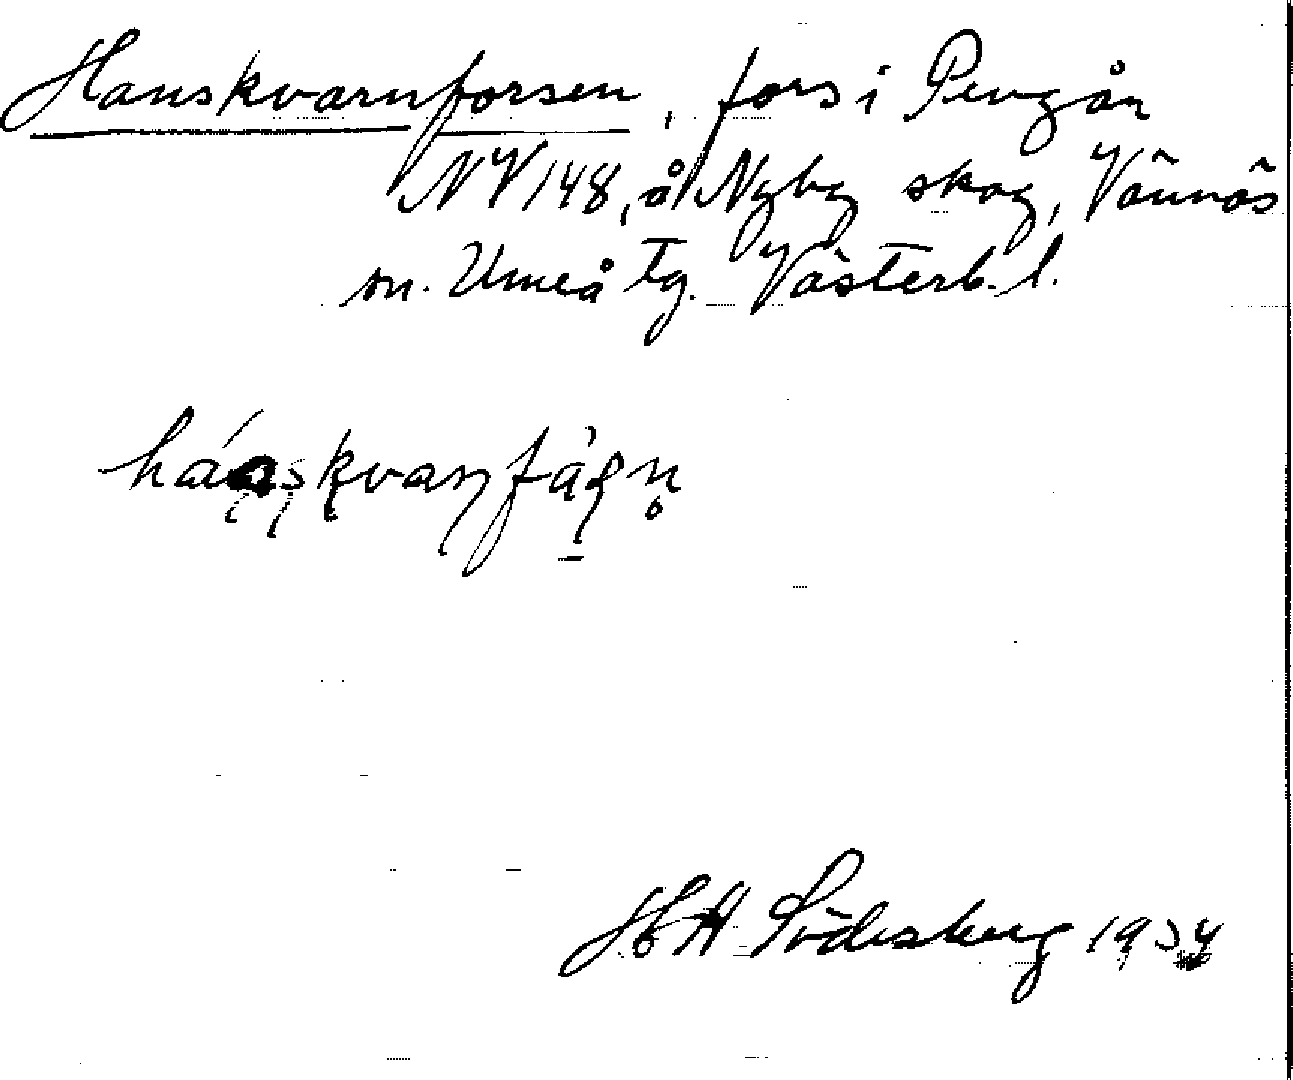 Hanskvarnforsen, fors i Pengån
NV 148, å Nyby skog, Vännäs
sn. Umeå tg. Västerb. l.
H A Söderberg 1934